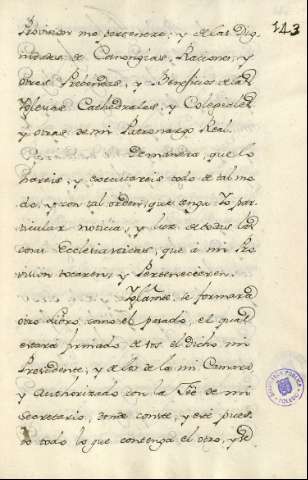 143
Provision me pertenece, y de las Dig
nidades de Canongias, Raciones, y
otras Prebendas, y Beneficios de las
Yglesias Cathedrales, y Colegiales
y otras de mi Patronazgo Real.
Demanera, que lo
hareis, y executareis todo de tal mo
do, y con tal orden, que tenga Yo par
ticular noticia, y luz de todas las
cosas Ecclesiasticas, que à mi Pro
vision tocaren, y Pertenecieren.
Yglamte. se formarà
otro Libro, como el pasado, el qual
estarà firmado de vos el dicho mi
Presidente, y de los de la mi Camara
y Authorizado con la Fee de mi
Secretario, donde conste, y estè pues
to todo lo que contenga el otro, y se
BIBLIOTECA PUBLICA
TOLEDO